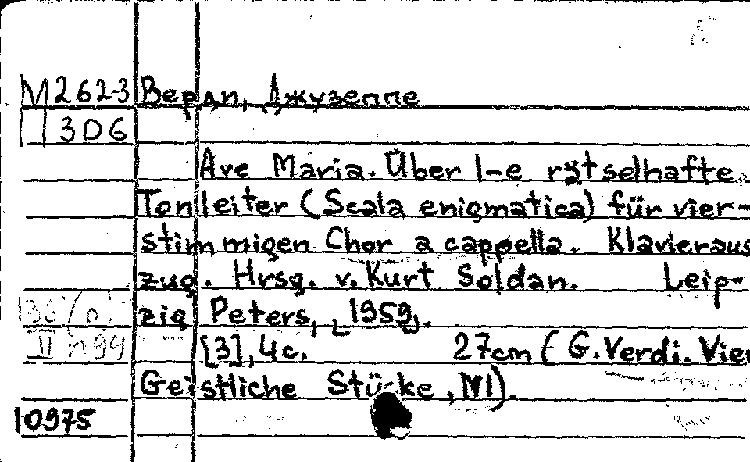 M262-3 Верди, Джузеппе
306
Ave Maria. Über l-e rätselhafte
Tonleiter (Scala enigmatica) für vier-
stimmigen Chor a cappella. Klavieraus
zug. Hrsg. v. Kurt Soldan. Leip-
zig Peters, [1959].
[3], 4 с. 27cm (G. Verdi. Vier
Geistliche Stücke, N1).
10975